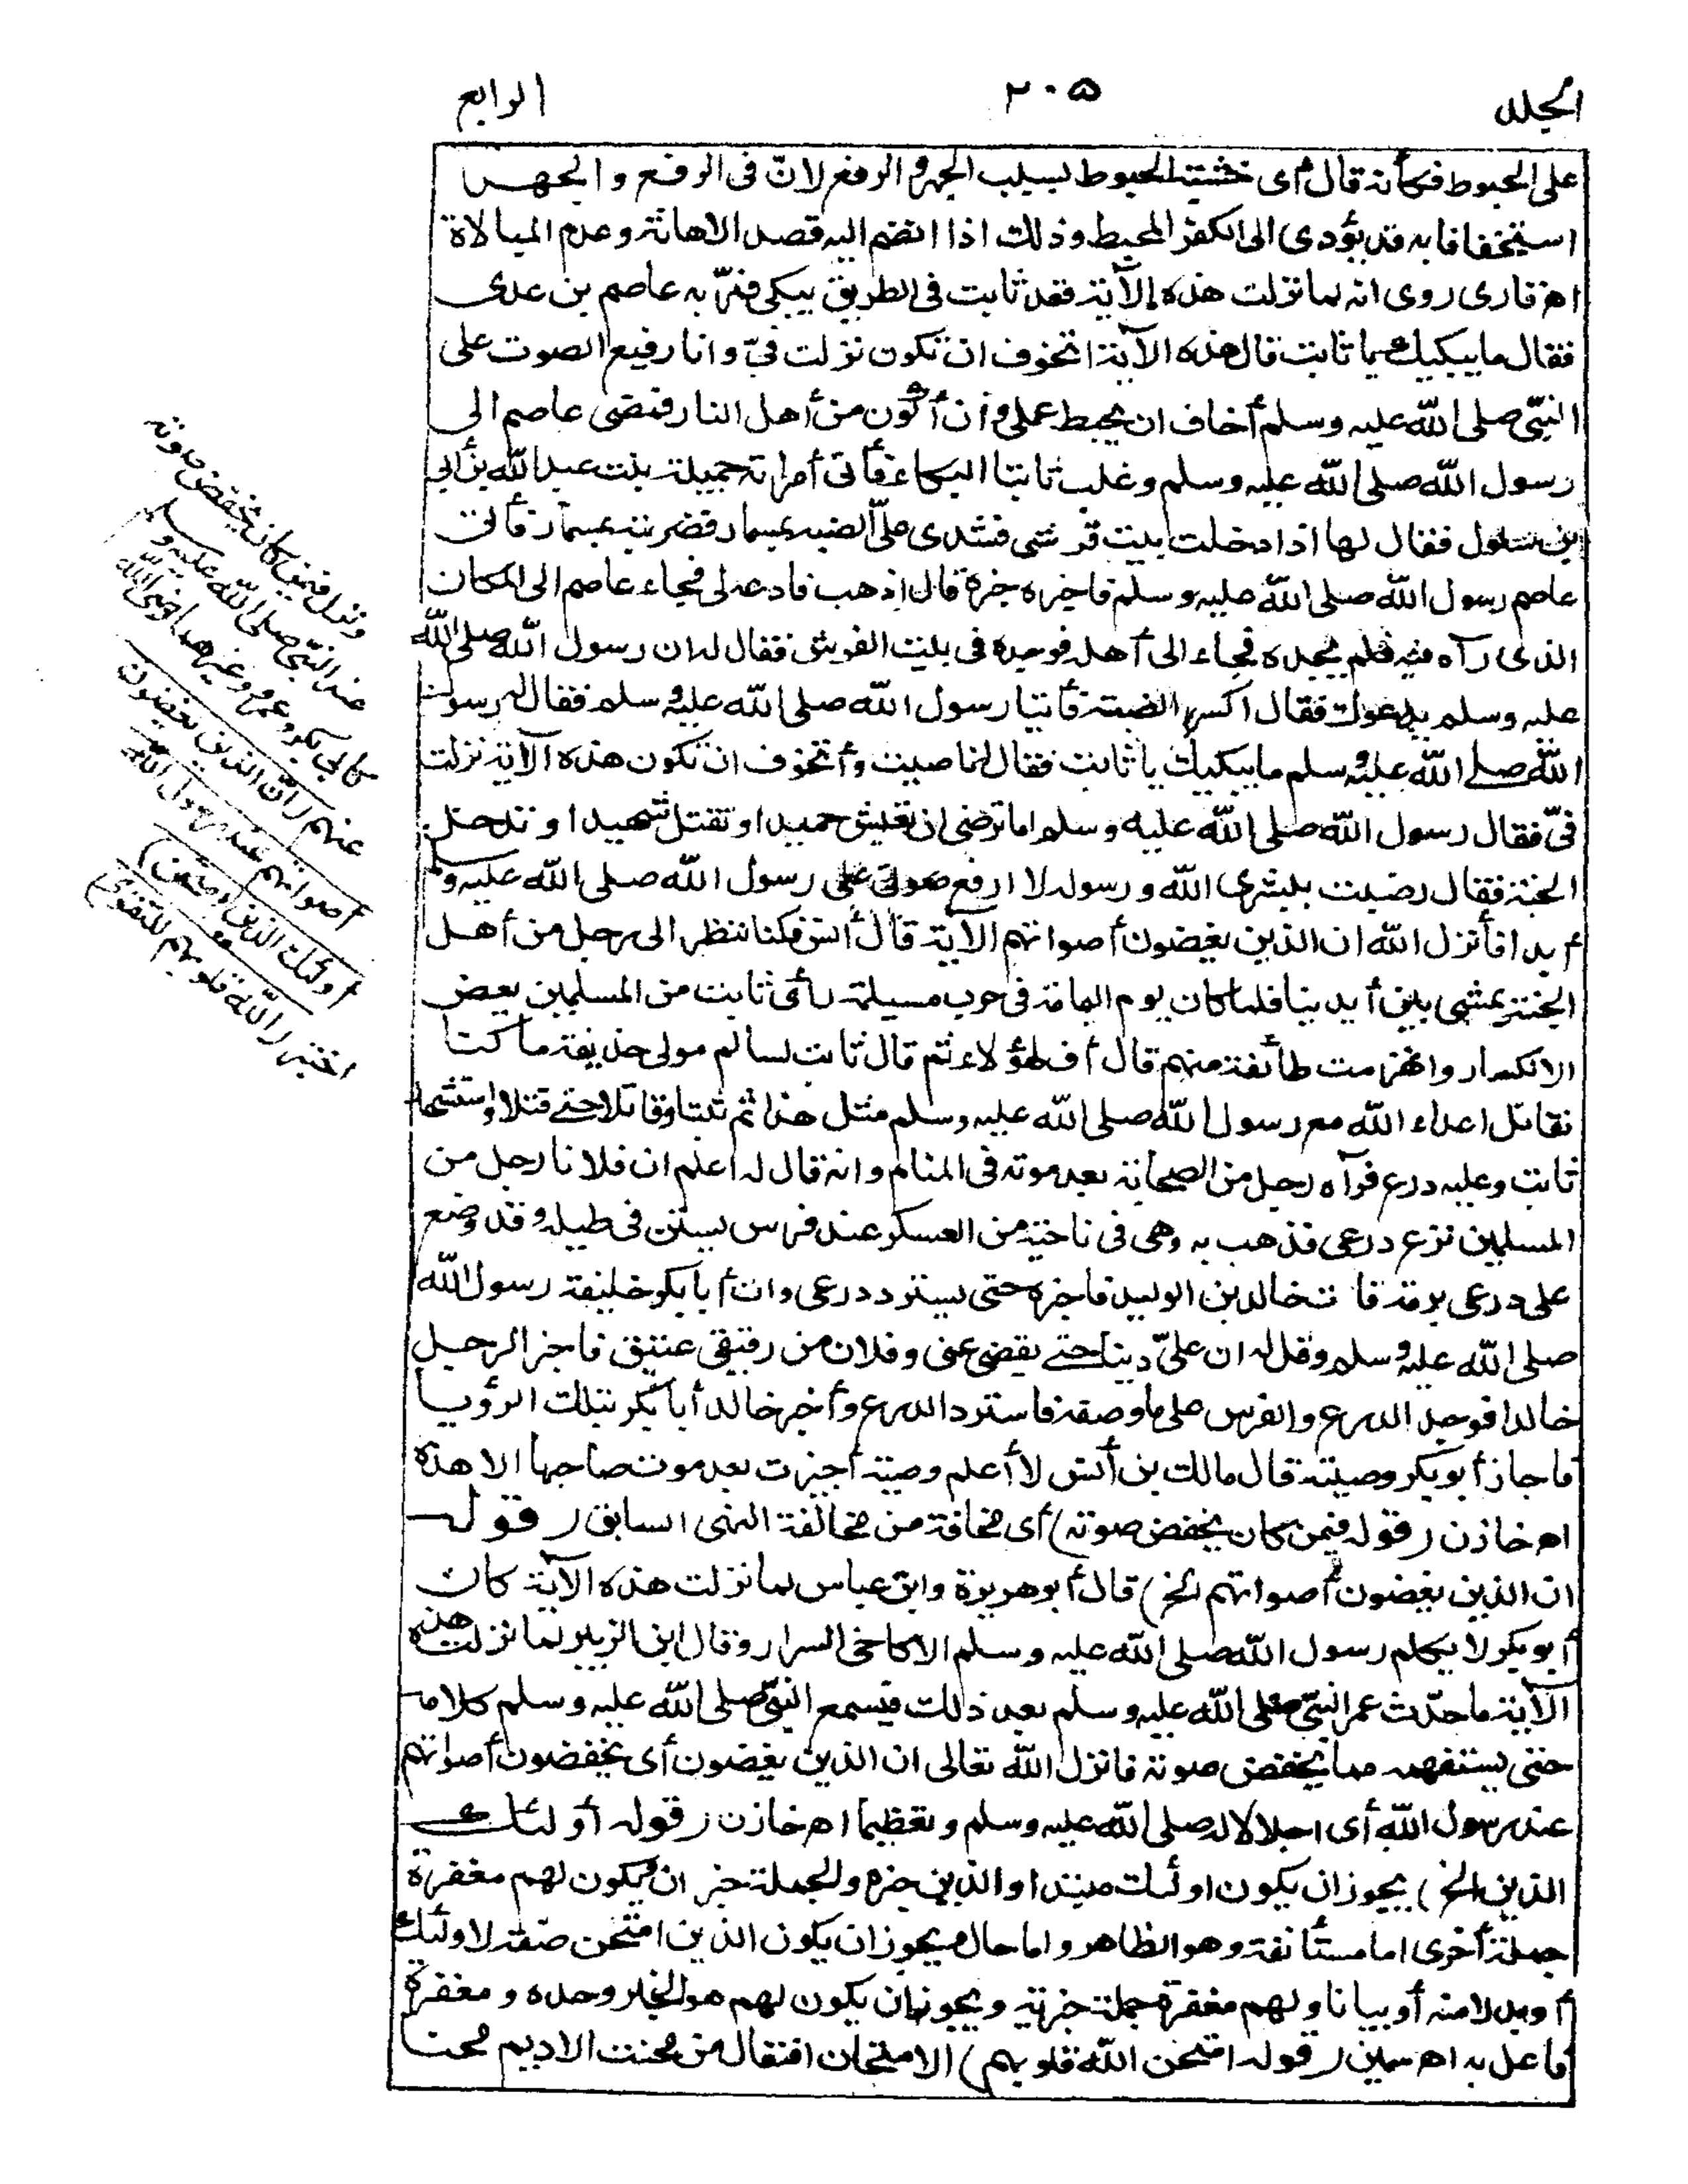 المجلد
٢٠٥
الرابع
على الحبوط فكأنه قال أى خشية الحبوط بسبب الجهر والرفع لان فى الرفع والجهر
استخفافا به قد يؤدى الى الكفر المحبط وذلك اذا انضم اليه قصد الاهانة وعدم المبالاة
اه قارى روى انه لما نزلت هذه الآية قعد ثابت فى الطريق يبكى فمرّ به عاصم بن عدى
فقال ما يبكيك يا ثابت قال هذه الآية اتخوف ان تكون نزلت فىّ وانا رفيع الصوت على
النبىّ صلى اللّه عليه وسلم أخاف ان يحبط عملى وان أكون من أهل النار فمضى عاصم الى
رسول اللّه صلى اللّه عليه وسلم وغلب ثابتا البكاء فأتى أمراته جميلة بنت عبد اللّه بن أبى
بن سلول فقال لها اذا دخلت بيت فرشى فشدى علىّ الضبة بمسمار فضربته بمسمار فأتى
عاصم رسول اللّه صلى اللّه عليه وسلم فاخبره خبره قال اذهب فادعه لى فجاء عاصم الى المكان
الذى رآه فيه فلم يجده فجاء الى أهله فوجده فى بيت الفرش فقال له ان رسول اللّه صلى اللّه
عليه وسلم يدعوك فقال اكسر الضبة فأتيا رسول اللّه صلى اللّه عليه وسلم فقال له رسول
اللّه صلى اللّه عليه وسلم ما يبكيك يا ثابت فقال انا صيت وأتخوف ان تكون هذه الآية نزلت
فىّ فقال رسول اللّه صلى اللّه عليه وسلم اما ترضى ان تعيش حميدا وتقتل شهيدا وتدخل
الجنة فقال رضيت ببشرى اللّه ورسوله لا ارفع صوتى على رسول اللّه صلى اللّه عليه وسلم
أبدا فأنزل اللّه ان الذين يغضون أصواتهم الآية قال أنس فكنا ننظر الى رجل من أهل
الجنة يمشى بين أيدينا فلما كان يوم اليمامة فى حرب مسيلمة رأى ثابت من المسلمين بعض
الانكسار وانهزمت طائفة منهم قال أف لهؤلاء ثم قال ثابت لسالم مولى حذيفة ما كنا
نقاتل اعداء اللّه مع رسول اللّه صلى اللّه عليه وسلم مثل هذا ثم ثبتا وقاتلا حتى قتلا واستشهد
ثابت وعليه درع فرآه رجل من الصحابة بعد موته فى المنام وانه قال له اعلم ان فلانا رجل من
المسلمين نزع درعى فذهب به وهى فى ناحية من العسكر عند فرس يستن فى طيله وقد وضع
على درعى برمة فات خالد بن الوليد فاخبره حتى يسترد درعى وات أبا بكر خليفة رسول اللّه
صلى اللّه عليه وسلم وقل له ان علىّ دينا حتى يقضى عنى وفلان من رقيقى عتيق فاخبر الرجل
خالدا فوجد الدرع والفرس على ما وصفه فاسترد الدرع وأخبر خالد أبا بكر بتلك الرؤيا
فاجاز أبو بكر وصيته قال مالك بن أنس لا أعلم وصية أجيزت بعد موت صاحبها الا هذه
اه خازن (قوله فيمن كان يخفض صوته) أى مخافة من مخالفة النهى السابق (قوله
ان الذين يغضون أصواتهم الخ) قال أبو هريرة وابن عباس لما نزلت هذه الآية كان
أبو بكر لا يكلم رسول اللّه صلى اللّه عليه وسلم الا كاخى السرار وقال ابن الزبير لما نزلت هذه
الآية ما حدّث عمر النبىّ صلى اللّه عليه وسلم بعد ذلك فيسمع النبىّ صلى اللّه عليه وسلم كلامه
حتى يستفهمه مما يخفض صوته فانزل اللّه تعالى ان الذين يغضون أى يخفضون أصواتهم
عند رسول اللّه أى اجلالا له صلى اللّه عليه وسلم وتعظيما اه خازن (قوله أولئك
الذين الخ) يجوز ان يكون اولئك مبتدا والذين خبره والجملة خبر ان ويكون لهم مغفرة
جملة أخرى اما مستأنفة وهو الظاهر واما حال ويجوز ان يكون الذين امتحن صفة لاولئك
أو بدلا منه أو بيانا ولهم مغفرة جملة خبرية ويجوز ان يكون لهم هو الخبر وحده ومغفرة
فاعل به اه سمين (قوله امتحن اللّه قلوبهم) الامتحان افتعال من محنت الاديم محنا
ونزل فيمن كان يخفض صوته
عند النبىّ صلى اللّه عليه وسلم
كابى بكر وعمر وغيرهما رضى اللّه
عنهم (ان الذين يغضون
أصواتهم عند رسول اللّه
أولئك الذين امتحن)
اختبر (اللّه قلوبهم للتقوى)